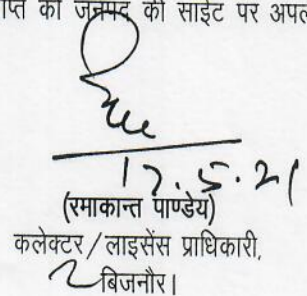 प्ति को जनपद की साईट पर अपल
17.5.21
(रमाकान्त पाण्डेय)
कलेक्टर/लाइसेंस प्राधिकारी,
बिजनौर।